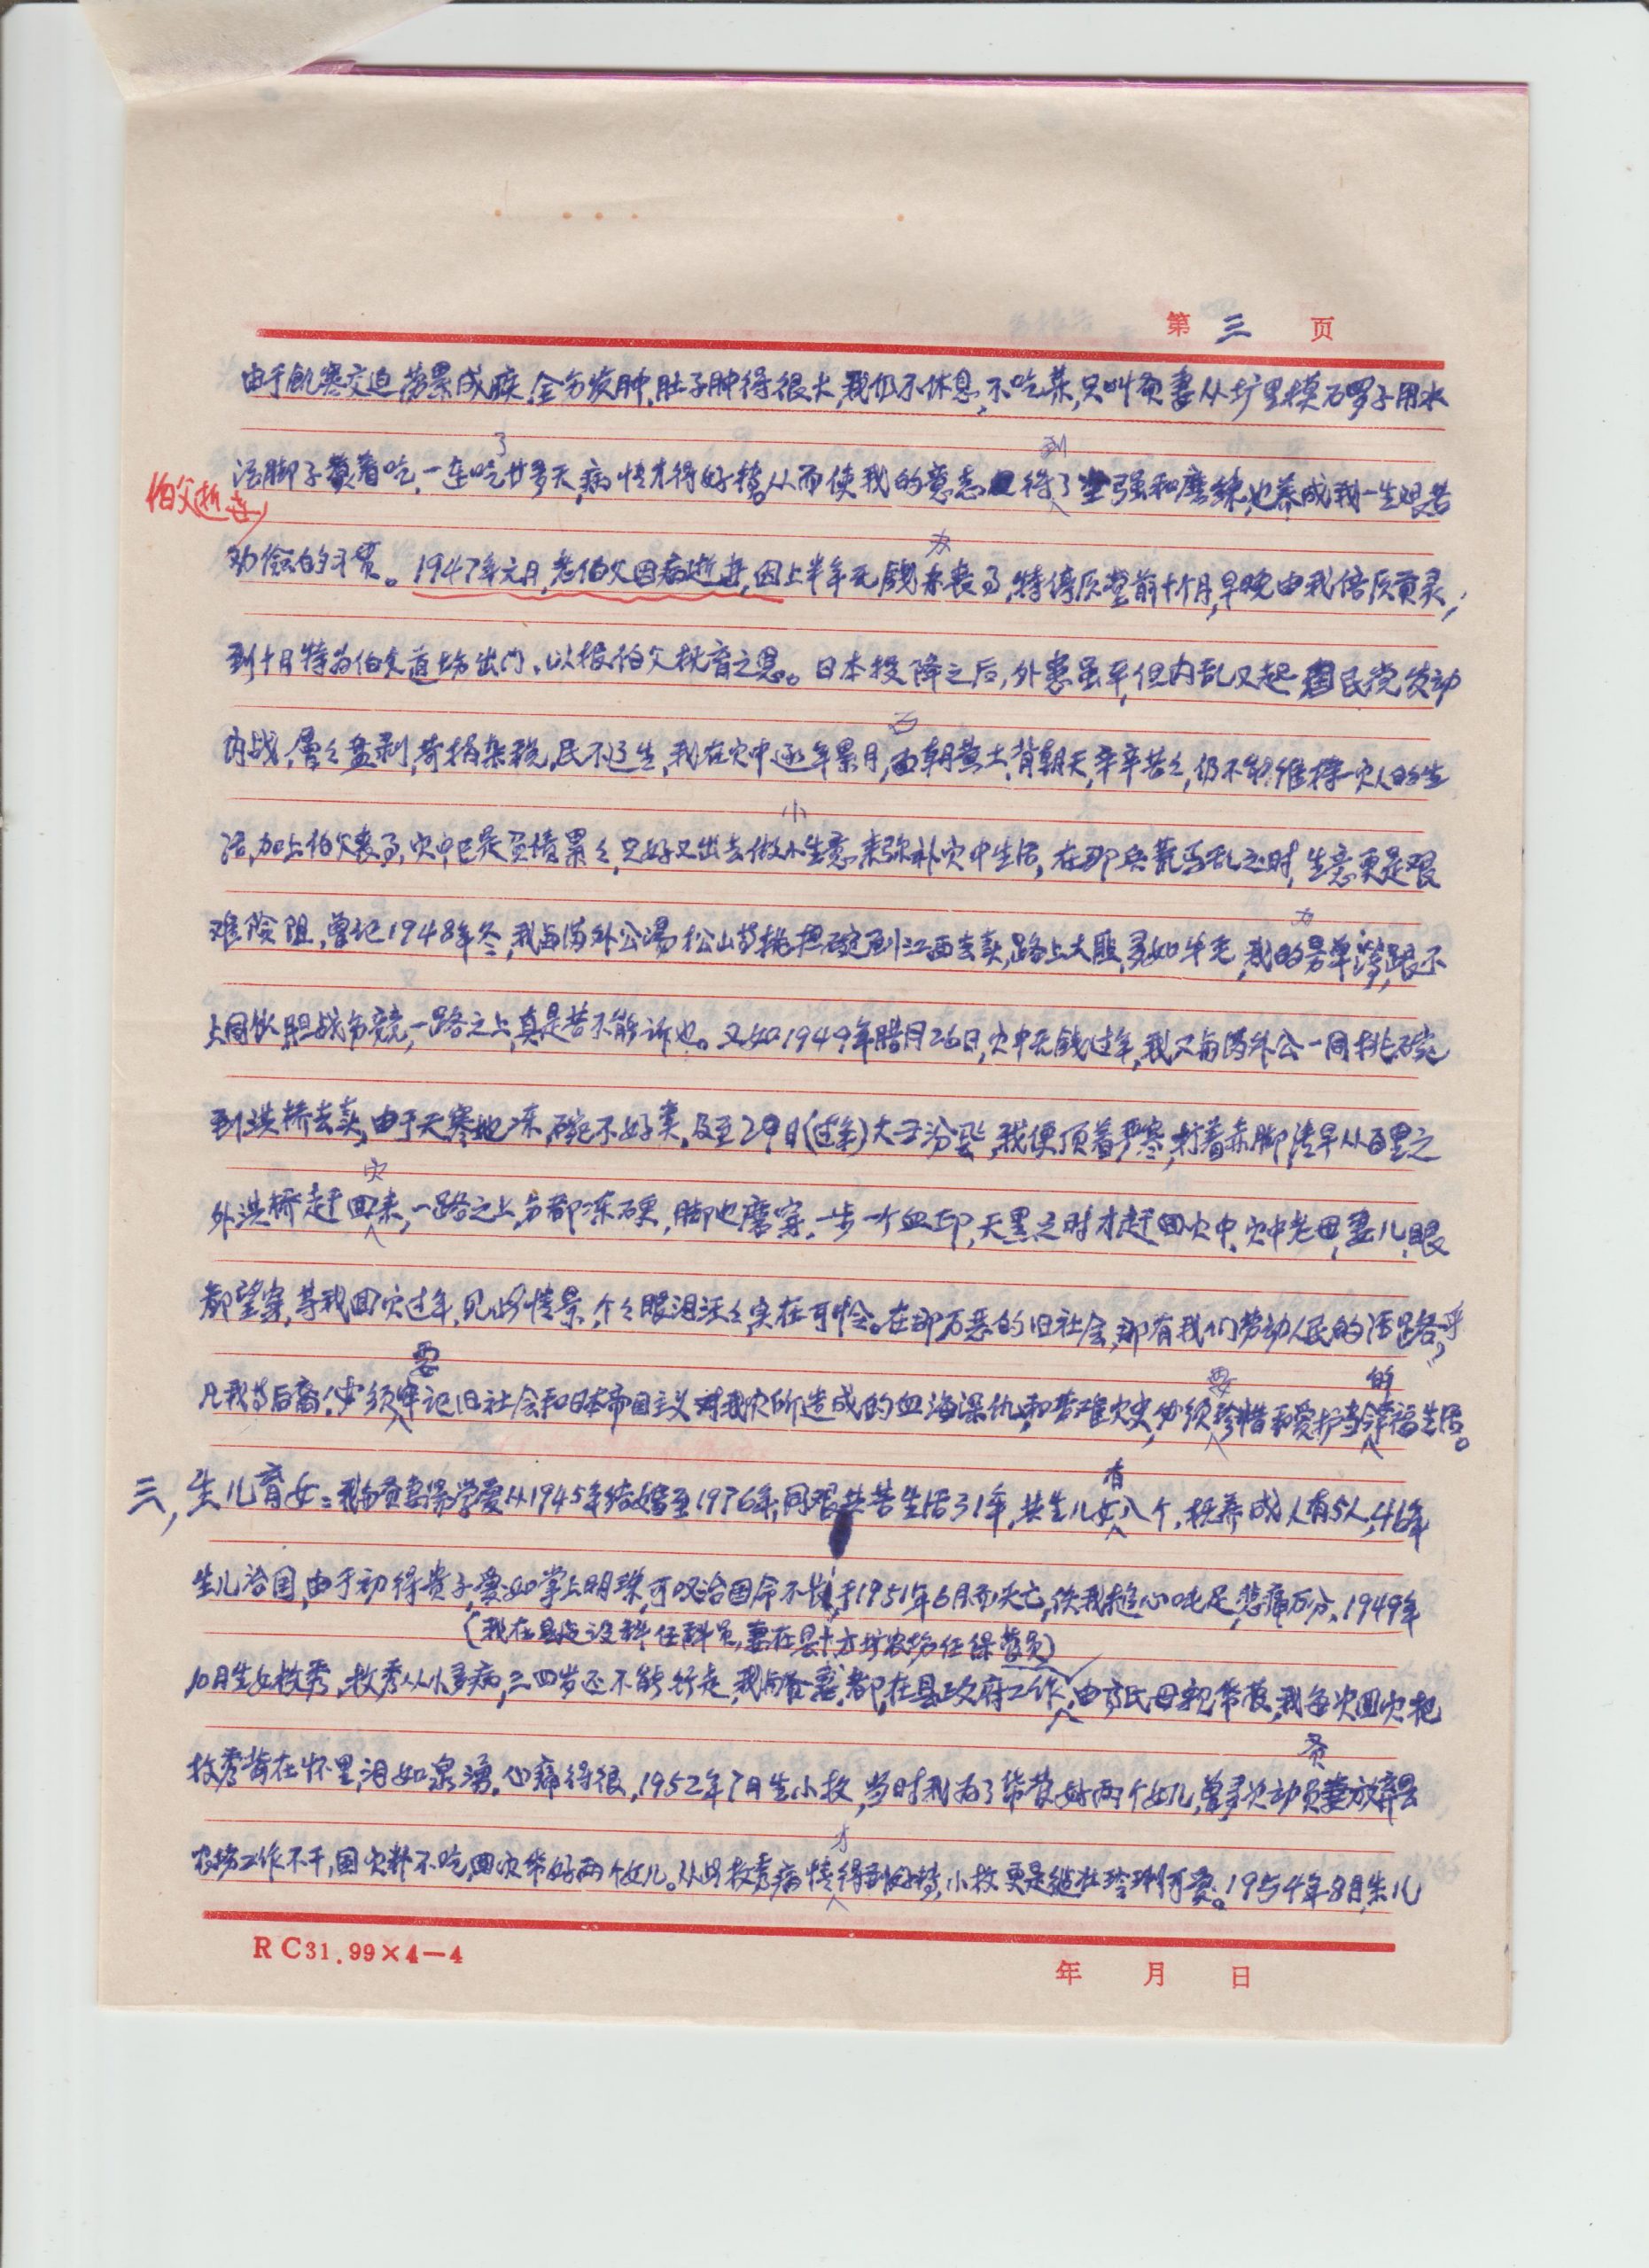 第 三 页
由于飢寒交迫劳累成疾,全身发肿,肚子肿得很大,我仍不休息,不吃药,只叫贤妻从圹里摸石罗子用水
活脚子煮着吃,一连吃了廿多天,病情才得好转。从而使我的意志得到了坚强和磨练,也养成我一生艰苦
伯父逝世
勤俭的习贯。1947年元月,老伯父因病逝世,因上半年无钱办丧事,特停厅堂前十个月,早晚由我陪厅貢灵,
到十月特为伯父道场出门,以报伯父抚育之恩。日本投降之后,外患虽平,但内乱又起,国民党发动
内战,层々盘剥,苛捐杂税,民不了生,我在家中逐年累月,面朝黄土,背朝天,辛辛苦々,仍不能维持一家人的生
活,加上伯父丧事,家中已是负债累々,只好又出去做小生意来弥补家中生活,在那兵荒马乱之时,生意更是艰
难险阻,曾记1948年冬,我与满外公易松山等挑担碗到江西去卖,路上大股,多如牛毛,我的力单薄,跟不
上同伙,胆战心竞,一路之上,真是苦不能诉也。又如1949年腊月26日,家中无钱过年,我又与满外公一同挑碗
到洪桥去卖,由于天寒地冻,碗不好卖,及至29日(过年)大雪汾飞,我便顶着严寒,打着赤脚,清早从百里之
外洪桥赶回家来,一路之上,身都冻硬,脚也磨穿,一步一个血印,天黑之时才赶回家中,家中老母,妻儿,眼
都望穿,等我回家过年,见此情景,个々眼泪汪々,实在可怜。在那万恶的旧社会,那有我们劳动人民的活路乎,
凡我等后裔!必须要牢记旧社会和日本帝国主义对我家所造成的血海深仇,和苦难家史,必须要珍惜和爱护当今的幸福生活。
三,生儿育女:我与贤妻易学爱从1945年结婚至1976年,同艰共苦生活31年,共生儿女有八个,抚养成人有5人,46年
生儿治国,由于初得贵子,爱如掌上明珠,可叹治国命不长,于1951年6月而夭亡,使我搥心吨足,悲痛万分。1949年
(我在县建设科任科员,妻在县十方圹农场任保管员)
10月生女枚秀,枚秀从小多病,三四岁还不能行走,我与贤妻,都在县政府工作,由彦氏母亲带管,我每次回家把
枚秀背在怀里,泪如泉涌,心痛得很,1952年7月生小枚,当时我为了带管好两个女儿,曾多次动员贤妻放弃县
农场工作不干,国家粮不吃,回家带好两个女儿。从此枚秀病情才得到好转,小枚更是健壮玲琍可爱。1954年8月,生儿
RC31.99×4—4
年 月 日